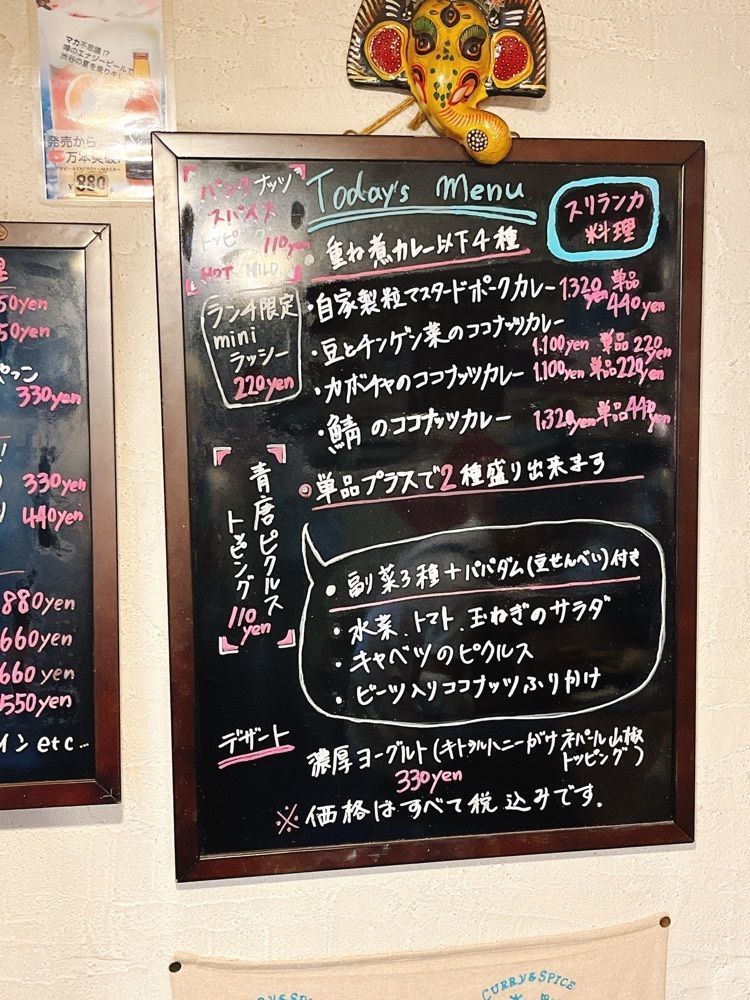 マカ不思議!?
噂のエナジービールで
渋谷の夏を乗りキ
発売から
6万本突破!
¥880
50yen
50yen
330yen
330yen
440yen
880yen
660yen
660yen
550yen
インetc…
パンクナッツ
スパイス
トッピング 110yen
HOT MILD
Today's Menu
スリランカ
料理
重ね煮カレー以下4種
ランチ限定
mini
ラッシー
220yen
・自家製粒マスタードポークカレー 1,320yen 単品440yen
・豆とチンゲン菜のココナッツカレー
1,100yen 単品220yen
・カボチャのココナッツカレー 1,100yen 単品220yen
・鯖のココナッツカレー 1,320yen 単品440yen
・単品プラスで2種盛り出来ます
青唐ピクルス
トッピング
110yen
・副菜3種+パパダム(豆せんべい)付き
・水菜、トマト、玉ねぎのサラダ
・キャベツのピクルス
・ビーツ入りココナッツふりかけ
デザート
濃厚ヨーグルト(キトゥルハニーがけ ネパール山椒トッピング)
330yen
※価格はすべて税込みです。
CURRY&SPICE
CURRY&SPICE